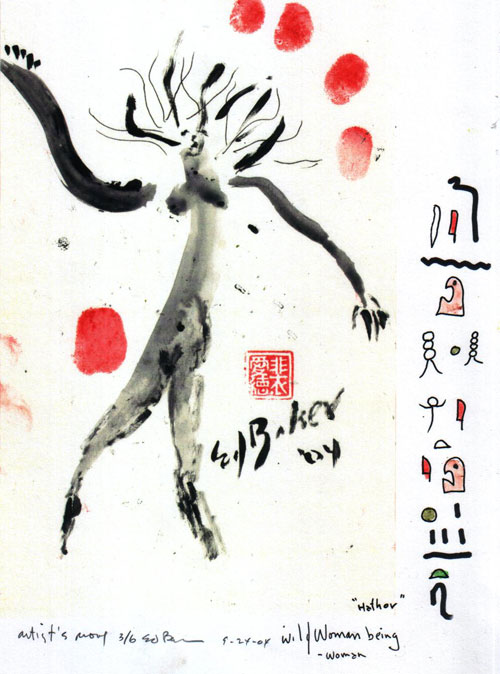 裴愛德
Ed Baker
'04
"Hathor"
artist's proof 3/6 Ed Baker 5-24-04 Wild Woman being
- woman